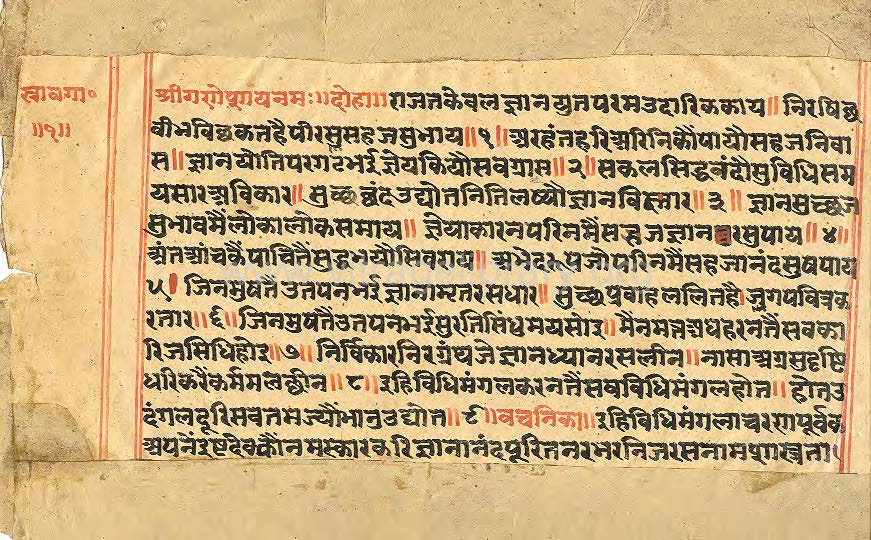 श्रावगा॰
॥१॥
श्रीगणेशायनमः॥दोहा॥राजतकेवलज्ञानयुतपरमउदारिककाय॥निरषिछ
वीभविछकतहैपीरससहजसुभाय॥१॥अरहंतहरिअरिनिकौंपायौसहजनिवा
स॥ज्ञानयोतिपरगटभईज्ञेयकियौसवग्रास॥२॥सकलसिद्धवंदौसुविधिसम
यसारअविकार॥सुच्छछंदउद्योतनितिलष्यौज्ञानविस्तार॥३॥ज्ञानसुच्छज
सुभावमैंलोकालोकसमाय॥ज्ञेयाकारनपरिनमैंसहजज्ञानरसुपाय॥४॥
अंतआंचकैंपाचितैंसुद्धभयौसिवराय॥अभेदरूपजोपरिनमैंसहजानंदसुषपाय
५॥जिनमुषतैंउतपनभईज्ञानामृतरसधार॥सुच्छप्रवाहललितहैजुगपवित्रक
रतार॥६॥जिनमुषतैंउतपनभईसुरतिसिंधुमयसोइ॥मैंनमतअघहरनतैंसवका
रिजसिधिहोइ॥७॥निर्विकारनिरग्रंथजेज्ञानध्यानरसलीन॥नासाअग्रसुदृष्टि
धरिकरैंकर्ममलछीन॥८॥इहिविधिमंगलकरनतैंसवविधिमंगलहोत॥होतउ
दंगलदूरिसवतमज्यौंभानुउद्योत॥९॥वचनिका॥इहिविधिमंगलाचरणपूर्वक
अपनेंइष्टदेवकौंनमस्कारकरिज्ञानानंदपूरितनरभरनिजरसनामप्रा